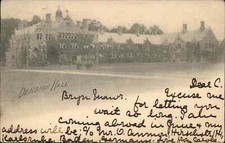 Denbigh Hall
Dear C.
Bryn Mawr.
Excuse me
for letting you
wait so long. I am
coming abroad in June, my
address will be: c/o
Karlsruhe, Baden, Germany.